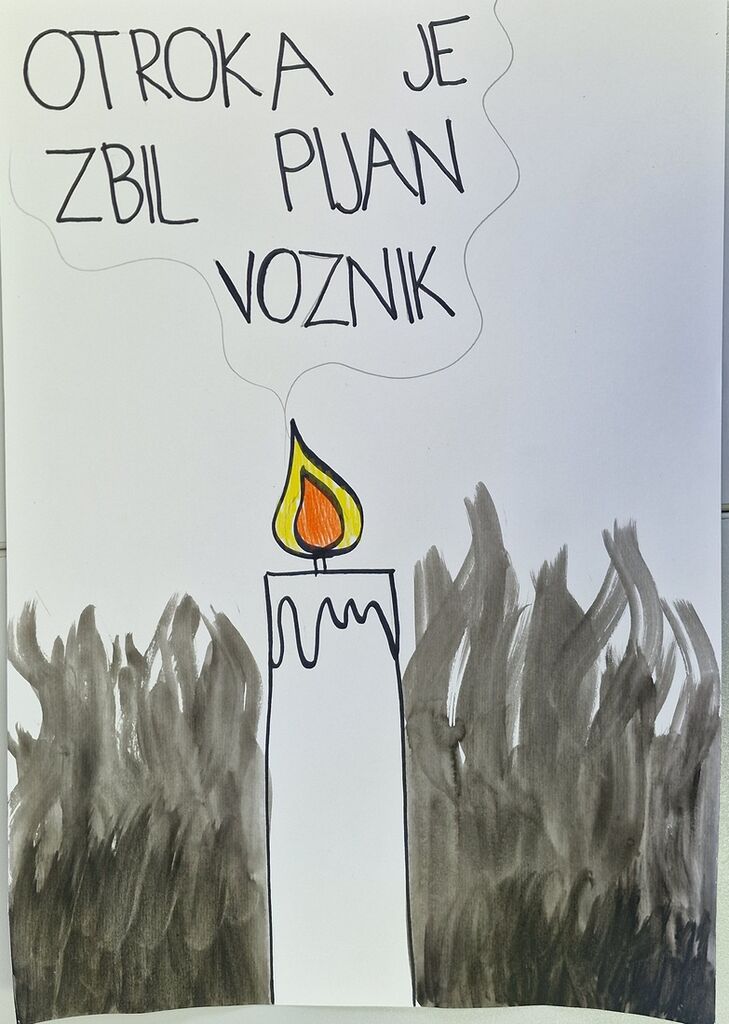 OTROKA JE
ZBIL PIJAN
VOZNIK